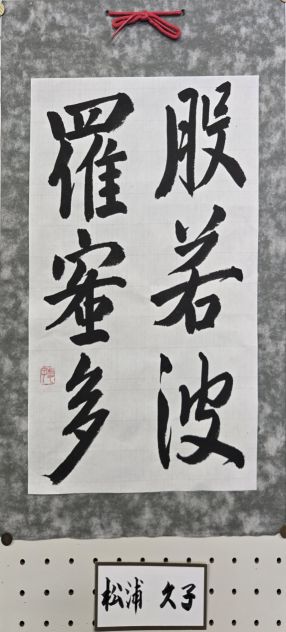 般若波
羅蜜多
松浦 久子